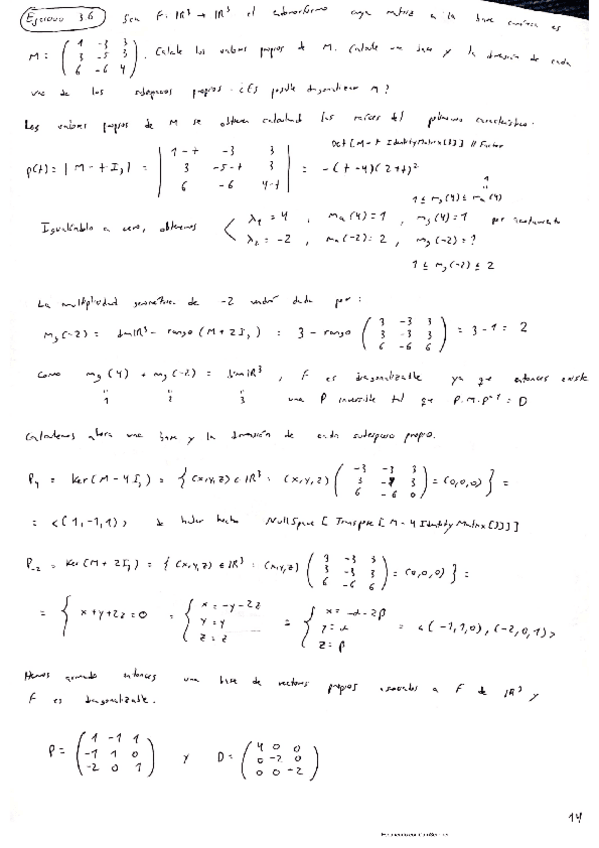 Ejercicio 3.6 Sea F: ℝ³ → ℝ³ el endomorfismo cuya matriz en la base canónica es
M = ( 1 -3 3 / 3 -5 3 / 6 -6 4 ). Calcule los valores propios de M. Calcule una base y la dimensión de cada
uno de los subespacios propios. ¿Es posible diagonalizar M?
Los valores propios de M se obtienen calculando las raíces del polinomio característico.
Det[M - t IdentityMatrix[3]] // Factor
p(t) = |M - t I₃| = | 1-t -3 3 / 3 -5-t 3 / 6 -6 4-t | = -(t-4)(2+t)²
1
1 ≤ mg(4) ≤ ma(4)
Igualándolo a cero, obtenemos < λ₁ = 4, ma(4) = 1, mg(4) = 1 por
λ₂ = -2, ma(-2) = 2, mg(-2) = ?
1 ≤ mg(-2) ≤ 2
La multiplicidad geométrica de -2 vendrá dada por:
mg(-2) = dim ℝ³ - rango (M + 2I₃) = 3 - rango ( 3 -3 3 / 3 -3 3 / 6 -6 6 ) = 3 - 1 = 2
Como mg(4) + mg(-2) = dim ℝ³, F es diagonalizable ya que entonces existe
1 2 3 una P inversible tal que P·M·P⁻¹ = D
Calculemos ahora una base y la dimensión de cada subespacio propio.
P₄ = Ker(M - 4I₃) = { (x,y,z) ∈ ℝ³ : (x,y,z) ( -3 -3 3 / 3 -9 3 / 6 -6 0 ) = (0,0,0) } =
= <(1,-1,1)> de haber hecho NullSpace[Transpose[M - 4 IdentityMatrix[3]]]
P₋₂ = Ker(M + 2I₃) = { (x,y,z) ∈ ℝ³ : (x,y,z) ( 3 -3 3 / 3 -3 3 / 6 -6 6 ) = (0,0,0) } =
= { x+y+2z=0 = { x = -y-2z / y = y / z = z = { x = -α-2β / y = α / z = β = <(-1,1,0), (-2,0,1)>
Hemos entonces una base de vectores propios asociados a F de ℝ³ y
F es diagonalizable.
P = ( 1 -1 1 / -1 1 0 / -2 0 1 ) y D = ( 4 0 0 / 0 -2 0 / 0 0 -2 )
14